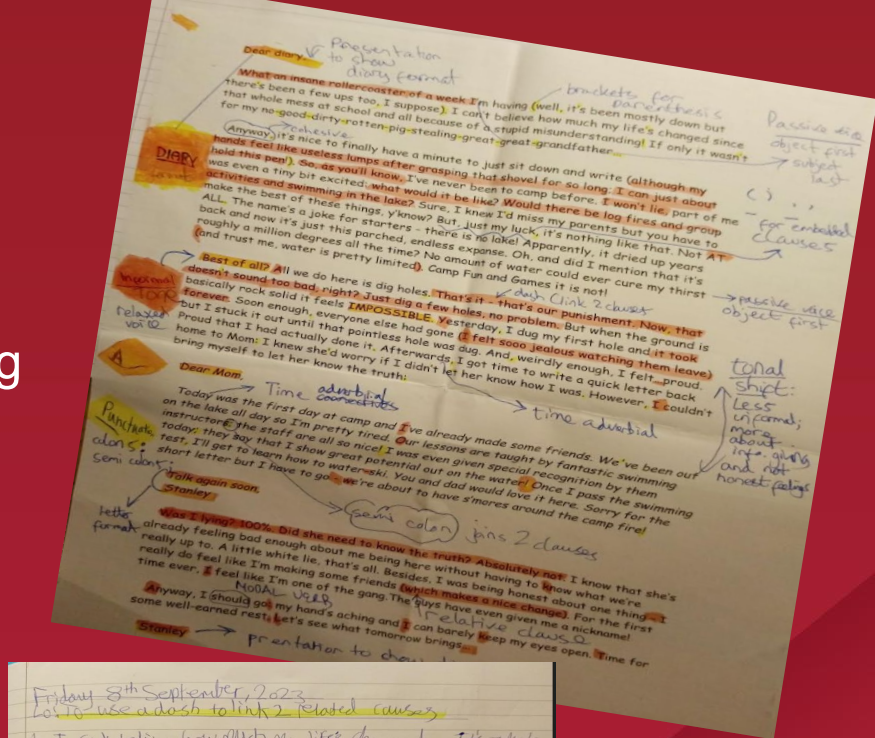 g
Dear diary,
Presentation
to show
diary format
What an insane rollercoaster of a week I'm having (well, it's been mostly down but
there's been a few ups too, I suppose). I can't believe how much my life's changed since
that whole mess at school and all because of a stupid misunderstanding! If only it wasn't
for my no-good-dirty-rotten-pig-stealing-great-great-grandfather...
brackets for
parenthesis
Passive
object first
subject
last
cohesive
Anyway, it's nice to finally have a minute to just sit down and write (although my
hands feel like useless lumps after grasping that shovel for so long: I can just about
hold this pen!). So, as you'll know, I've never been to camp before. I won't lie, part of me
was even a tiny bit excited: what would it be like? Would there be log fires and group
activities and swimming in the lake? Sure, I knew I'd miss my parents but you have to
make the best of these things, y'know? But, just my luck, it's nothing like that. Not AT
ALL. The name's a joke for starters - there is no lake! Apparently, it dried up years
back and now it's just this parched, endless expanse. Oh, and did I mention that it's
roughly a million degrees all the time? No amount of water could ever cure my thirst
(and trust me, water is pretty limited). Camp Fun and Games it is not!
DIARY
( ) , ,
for embedded
clauses
passive voice
object first
Best of all? All we do here is dig holes. That's it - that's our punishment. Now, that
doesn't sound too bad, right? Just dig a few holes, no problem. But when the ground is
basically rock solid it feels IMPOSSIBLE. Yesterday, I dug my first hole and it took
forever. Soon enough, everyone else had gone (I felt sooo jealous watching them leave)
but I stuck it out until that pointless hole was dug. And, weirdly enough, I felt...proud.
Proud that I had actually done it. Afterwards, I got time to write a quick letter back
home to Mom: I knew she'd worry if I didn't let her know how I was. However, I couldn't
bring myself to let her know the truth:
dash (link 2 clauses
Informal
Tone
relaxed
voice
A
Dear Mom,
Time adverbial
time adverbial
Today was the first day at camp and I've already made some friends. We've been out
on the lake all day so I'm pretty tired. Our lessons are taught by fantastic swimming
instructors; the staff are all so nice! I was even given special recognition by them
today: they say that I show great potential out on the water! Once I pass the swimming
test, I'll get to learn how to water-ski. You and dad would love it here. Sorry for the
short letter but I have to go - we're about to have s'mores around the campfire!
Talk again soon,
Stanley
tonal
shift:
Less
informal;
more
about
info. giving
and not
honest feelings
Punctuation
semi colons;
letter
format
semi colon joins 2 clauses
Was I lying? 100%. Did she need to know the truth? Absolutely not. I know that she's
already feeling bad enough about me being here without having to know what we're
really up to. A little white lie, that's all. Besides, I was being honest about one thing - I
really do feel like I'm making some friends (which makes a nice change). For the first
time ever, I feel like I'm one of the gang. The guys have even given me a nickname!
MODAL VERB
relative clause
Anyway, I should go: my hand's aching and I can barely keep my eyes open. Time for
some well-earned rest. Let's see what tomorrow brings...
Stanley
Friday 8th September, 2023
LO: To use a dash to link 2 related causes